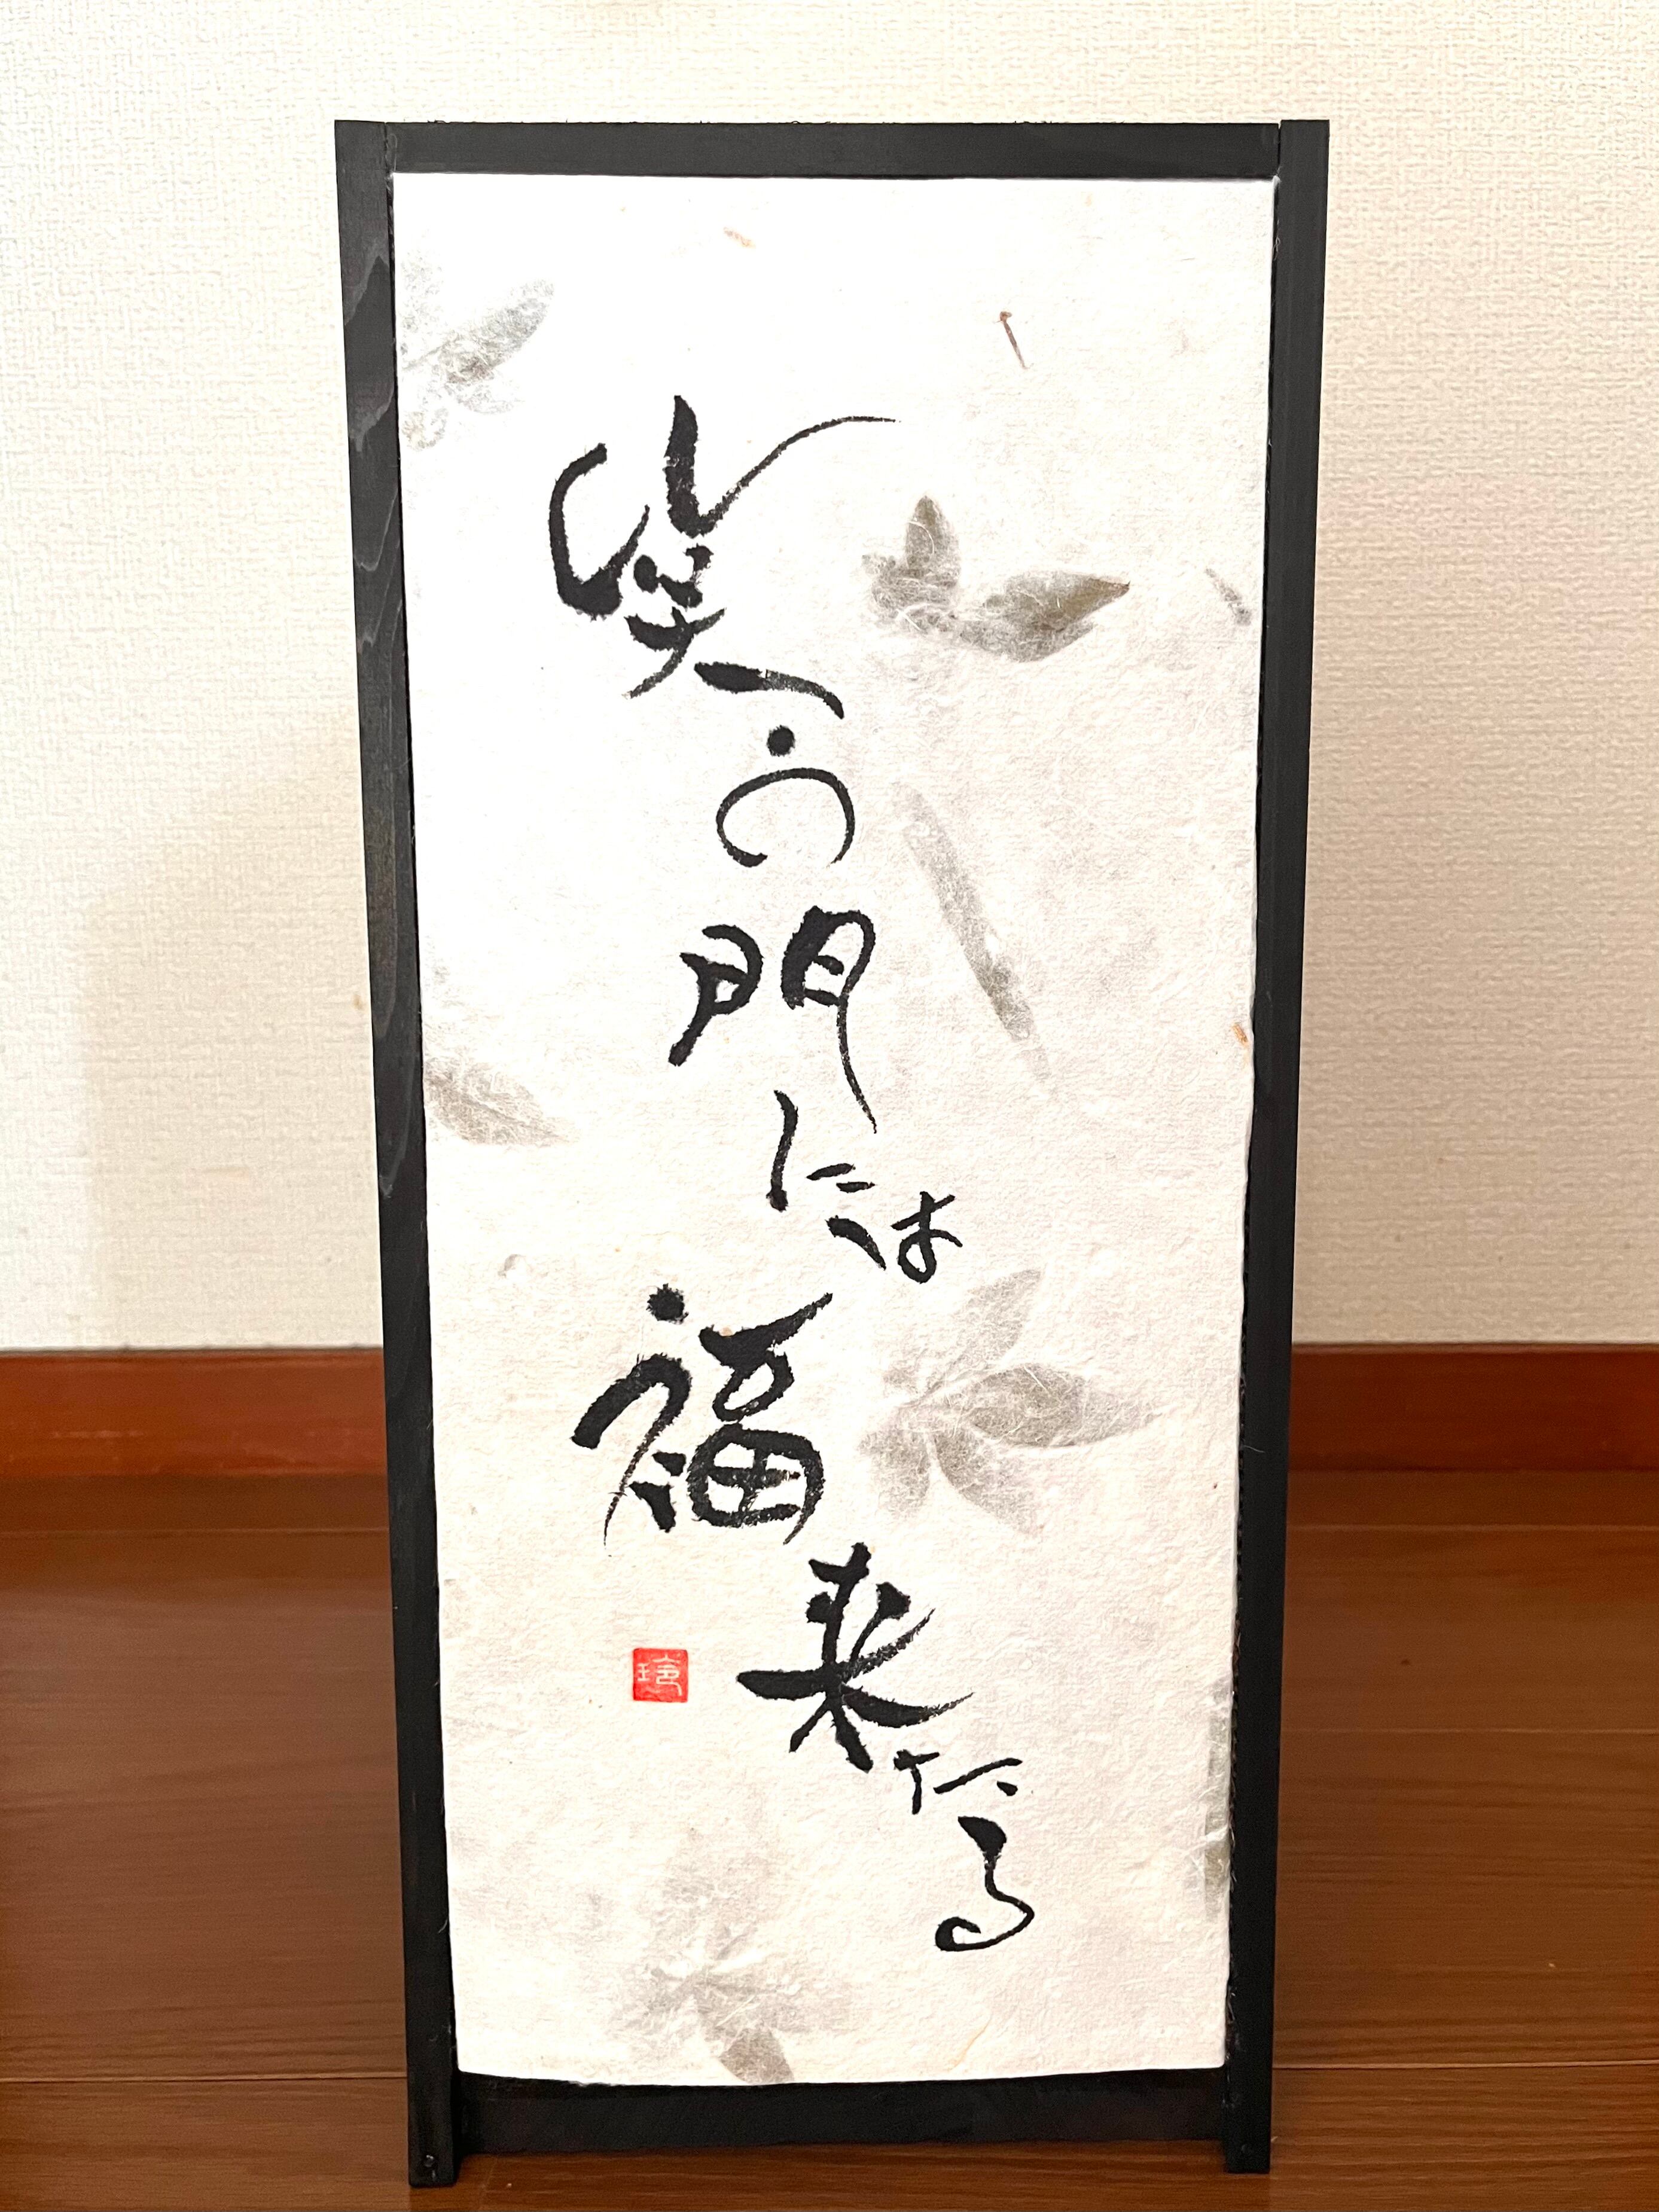 笑う門には福来たる
玲